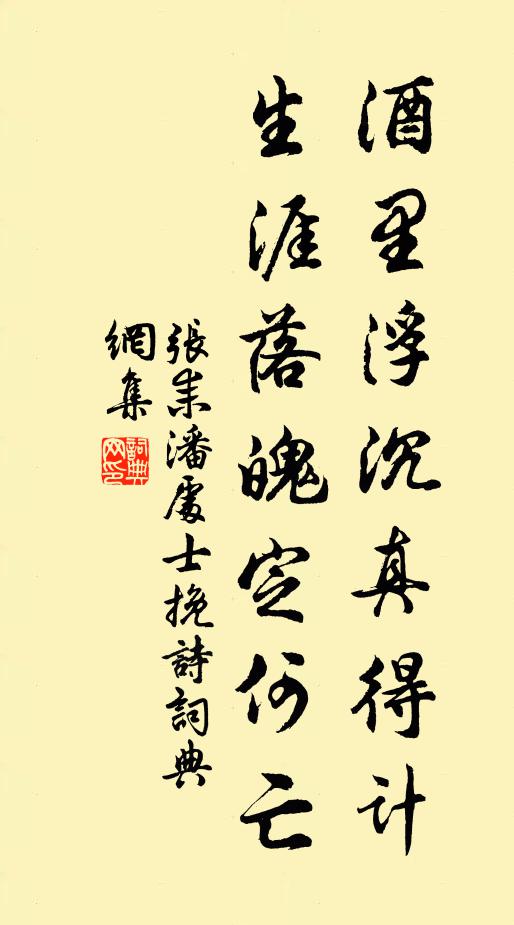 酒里浮沉真得計
生涯落魄定何亡
張耒潘處士挽詩詞典
網集
詞典
网印